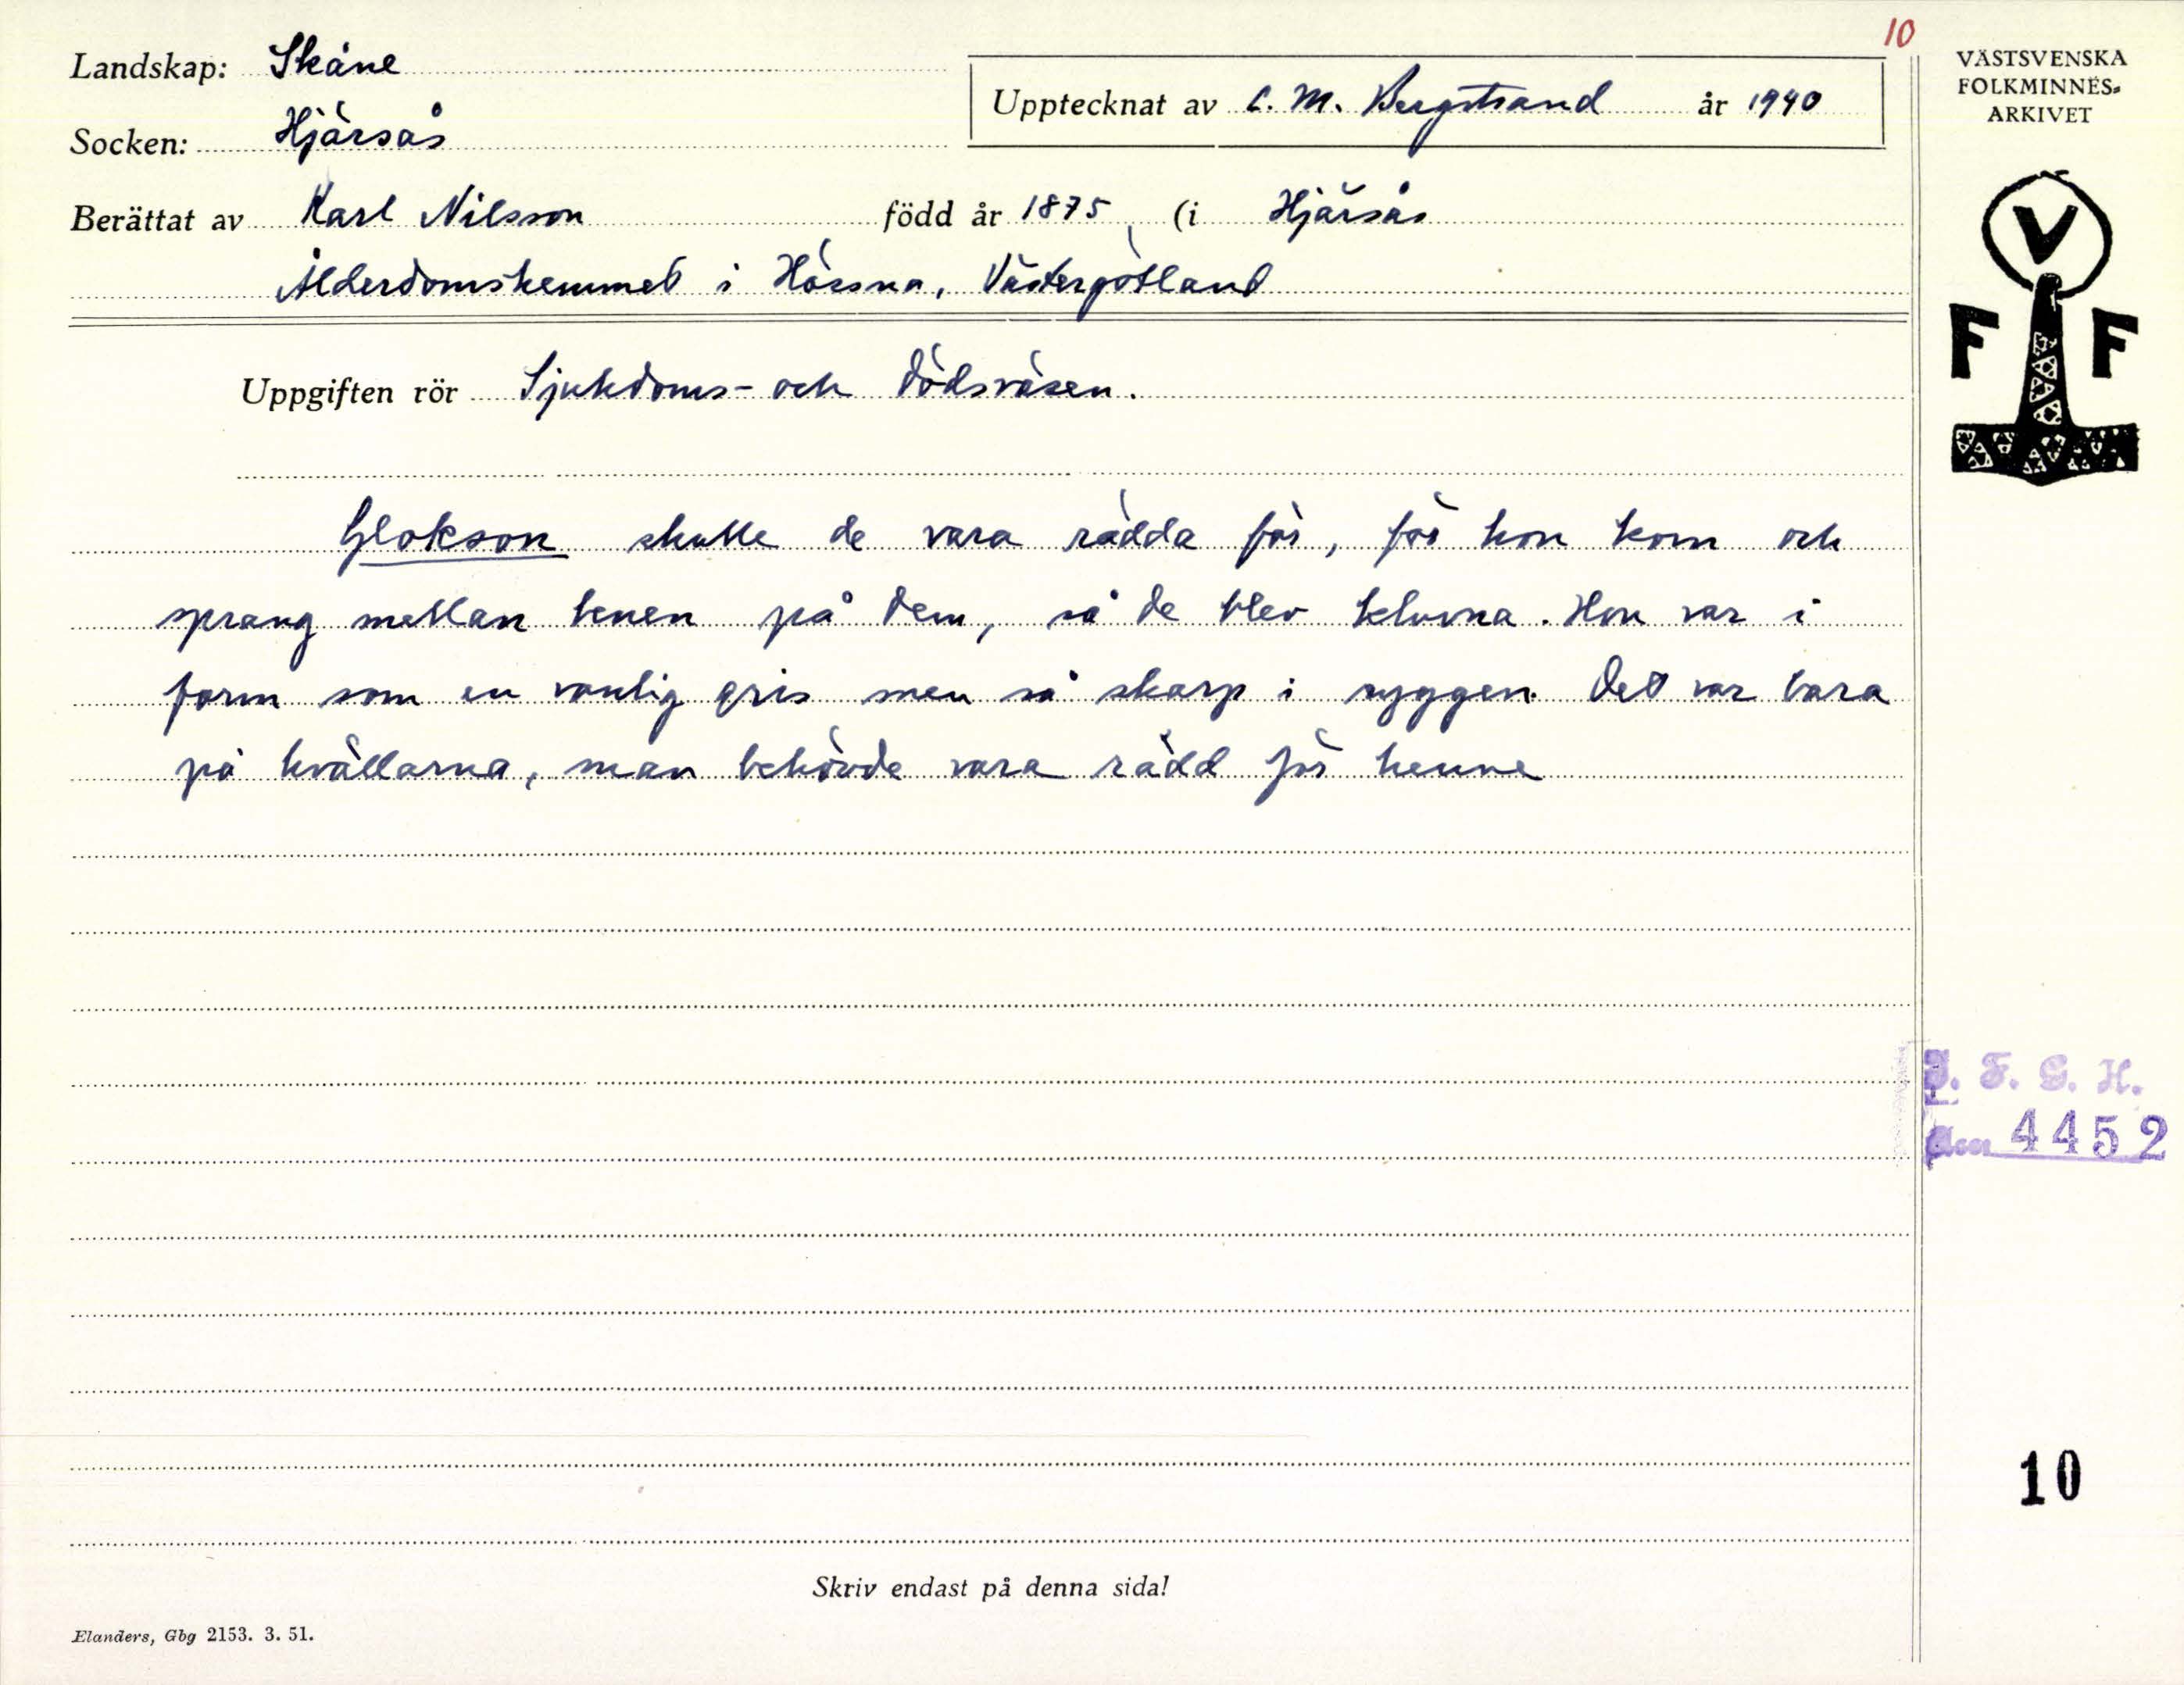 10
Landskap: Skåne
Upptecknat av C. M. Bergstrand år 1940
Socken: Hjärsås
Berättat av Karl Nilsson född år 1875, (i Hjärsås
Ålderdomshemmet i Hössna, Västergötland
Uppgiften rör Sjukdoms- och dödsväsen.
Glokson skulle de vara rädda för, för hon kom och
sprang mellan benen på dem, så de blev kluvna. Hon var i
form som en vanlig gris men så skarp i ryggen. Det var bara
på kvällarna, man behövde vara rädd för henne
Skriv endast på denna sida!
Elanders, Gbg 2153. 3. 51.
VÄSTSVENSKA
FOLKMINNES-
ARKIVET
V
F F
F. G. H.
4452
10